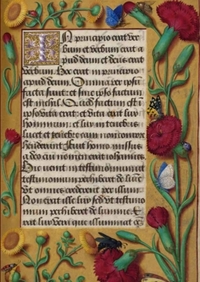 In principio erat ver
bum et verbum erat a
pud deum et deus erat
verbum. Hoc erat in principio
apud deum. Omnia per ipsum
facta sunt: et sine ipso factum
est nichil. Quod factum est in
ipso vita erat: et vita erat lux
hominum: et lux in tenebris
lucet et tenebre eam non compre
henderunt. Fuit homo missus
a deo cui nomen erat iohannes.
Hic venit in testimonium ut
testimonium perhiberet de lumine
Ut omnes crederent per illum.
Non erat ille lux sed ut testimo
nium perhiberet de lumine. E
rat lux vera que illuminat